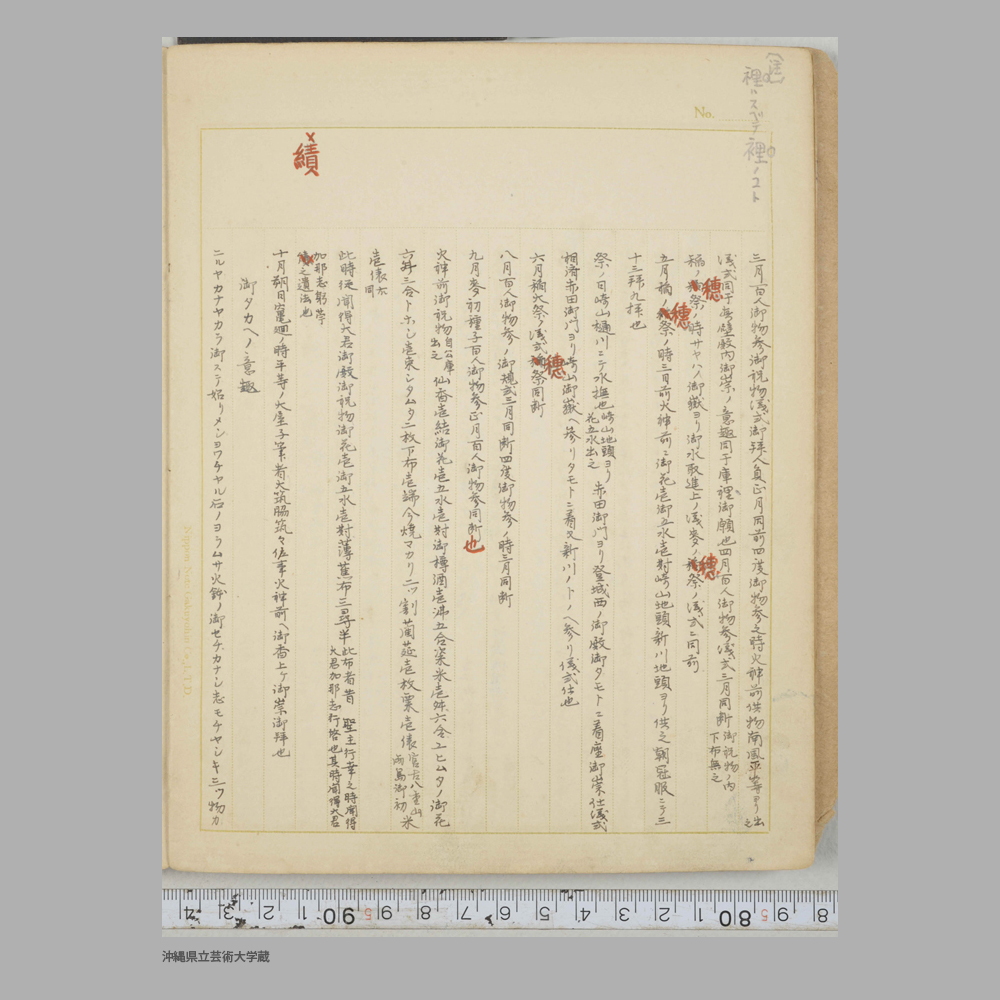 (注)
裡ハスベテ裡ノコト
No.
三月百人御物参御祝物儀式御拝人負正月同前四度御物参之時火神前供物南風平等ヨリ出之
儀式同于無壁敷内御崇ノ意趣同于庫裡御願也四月百人御物参儀式三月同断御祝物ノ内下布無之
稲ノ穂祭ノ時サヤハノ御嶽ヨリ御水取進上ノ儀麥ノ穂祭ノ儀式ニ同前
五月稲ノ穂祭ノ時三日前火神前ニ御花壱御五水壱對崎山地頭新川地頭ヨリ供之朝冠服ニテ三
十三拜九拝也
祭ノ日崎山樋川ニテ水撫也崎山地頭ヨリ花五水出之 赤田御門ヨリ登城西ノ御殿御タモトニ着座御崇仕儀式
相済赤田御門ヨリ崎山御嶽ヘ参リタモトニ着又新川ノトノヘ参リ儀式仕也
六月稲大祭ノ儀式穂祭同断
八月百人御物参ノ御規式三月同断四度御物参ノ時三月同断
九月麥初種子百人御物参正月百人御物参同断也
火神前御祝物自公庫出之 仙香壱結御花壱五水壱對御樽酒壱沸五合粢米壱舛六合ユヒムタノ御花
六舛三合トホシ壱束シタムタ二枚下布壱端今焼マカリ二ツ割蒲莚壱枚粟壱俵宮古八重山両島御初米
壱俵六同
此時従聞得大君御殿御祝物御花壱御五水壱對薄蕉布三尋半此布者昔 聖主行幸之時聞得大君加那志行啓也其時聞得大君
加那志躬掌
績之遺法也
績
十月朔日竃廻ノ時平等ノ大屋子筆者大筑脇筑々佐事火神前ヘ御香上ケ御崇御拜也
御タカヘノ意趣
ニルヤカナヤカラ御ステ始リメシヨワチヤル后ノヨラムサ火鉢ノ御セヂカナシ志モチヤシキ三ツ物カ
4 3 2 1 90 9 8 7 6 5 4 3 2 1 80 9 8
沖縄県立芸術大学蔵